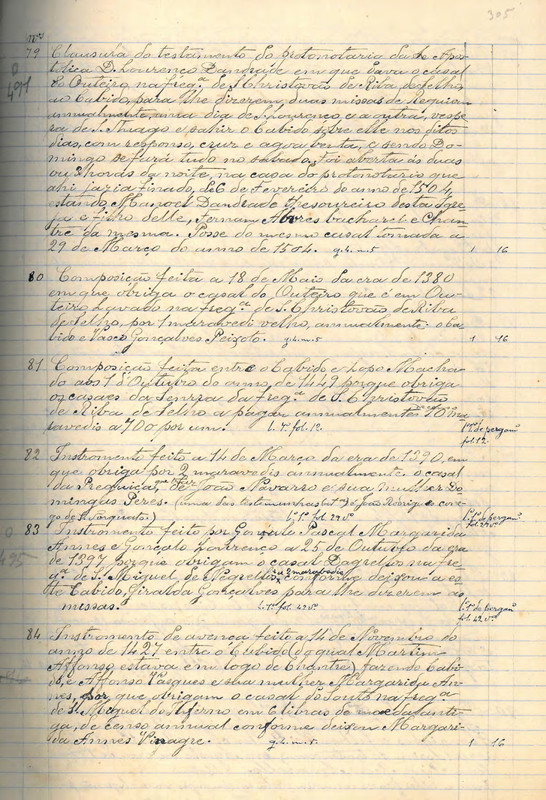 305
Nos
79 Clausura do testamento do protonotario da Sé Apos-
tolica D. Lourenço Dandrade em que dava o casal
do Outeiro, na fregª de S. Christovão de Riba de Selho
ao Cabido, para lhe dizerem duas missas de Requiem
annualmente, uma dia de S. Lourenço e a outra, vespe
ra de S. Thiago e sahir o Cabido sobre elle nos ditos
dias, com responso, cruz e agoa benta, e sendo Do-
mingo se fará tudo no sabado. Foi aberta ás duas
ou 3 horas da noite, na casa do protonotario que
ahi jazia finado, de 6 de Fevereiro do anno de 1504,
estando Manoel Dandrade Thesoureiro desta Igre
ja e filho delle, Fernam Alvares bacharel e Chan-
tre da mesma. Posse do mesmo casal tomada a
29 de Março do anno de 1504. g. 4. m. 5 1 16
80 Composição feita a 18 de Maio da era de 1380
em que obriga o casal do Outeiro que é em Ou-
teiro Lavado na fregª de S. Christovão de Riba
de Selho, por 1 maravedi velho, annualmente o Ca-
bido e Vasco Gonçalves Peixoto. g. 4. m. 5 1 16
81 Composição feita entre o Cabido e Lopo Macha
do aos 1 d'Outubro do anno, de 1449 porque obriga
os casaes da na fregª de S. Christovão
de Riba de Selho a pagar annualmente 10 ma
ravedis a 700 por um. L. 1º fol. 12. L. 1º de pergamº
fol. 12
82 Instromento feito a 14 de Março da era de 1390, em
que obriga por 2 maravedis annualmente o casal
da Preguiça, que fez João Navarro e sua mulher Do-
mingas Peres. (uma das testemunhas João Rodrig. e cone-
go de ) L. 1º fol. 29 vº L. 1º de pergamº
fol. 29 vº
83 Instromento feito por Gonçalo Pascal Margarida
Annes e Gonçalo Lourenço a 25 de Outubro da era
de 1397 porque obrigam o casal Dagrello na fre-
gª de S. Miguel de Negrellos, por 2 maravedis conforme deixou a es-
te Cabido, Giralda Gonçalves para lhe dizerem as
missas. L. 1º fol. 42 vº L. 1º de pergamº
fol. 42 vº
84 Instromento de avença feito a 14 de Novembro do
anno de 1427 entre o Cabido (o qual Martim
Affonso, estava em logo de Chantre) fazendo Cabi-
do, e Affonso Vasques e sua mulher Margarida An-
nes, por que obrigam o casal do Souto na fregª
de S. Miguel do Inferno em 6 libras de moeda anti-
ga, de censo annual conforme deixou Margari-
da Annes Vinagre. g. 4. m. 5 1 16